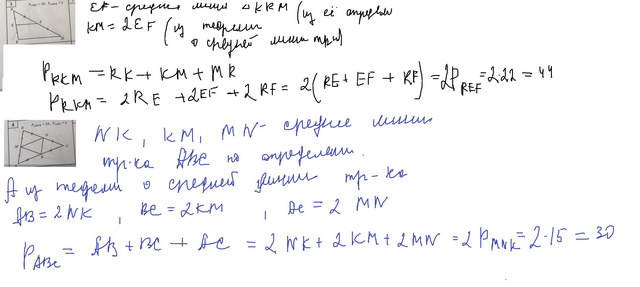 EF - средняя линия △KRM (из её определ
KM = 2EF (из теоремы
о средней линии тр-ка)
P_RKM = RK + KM + MR
P_RKM = 2RE + 2EF + 2RF = 2(RE + EF + RF) = 2P_REF = 2·22 = 44
4
NK, KM, MN - средние линии
тр-ка ABC по определению.
А из теоремы о средней линии тр-ка
AB = 2NK, BC = 2KM, AC = 2MN
P_ABC = AB + BC + AC = 2NK + 2KM + 2MN = 2P_MNK = 2·15 = 30